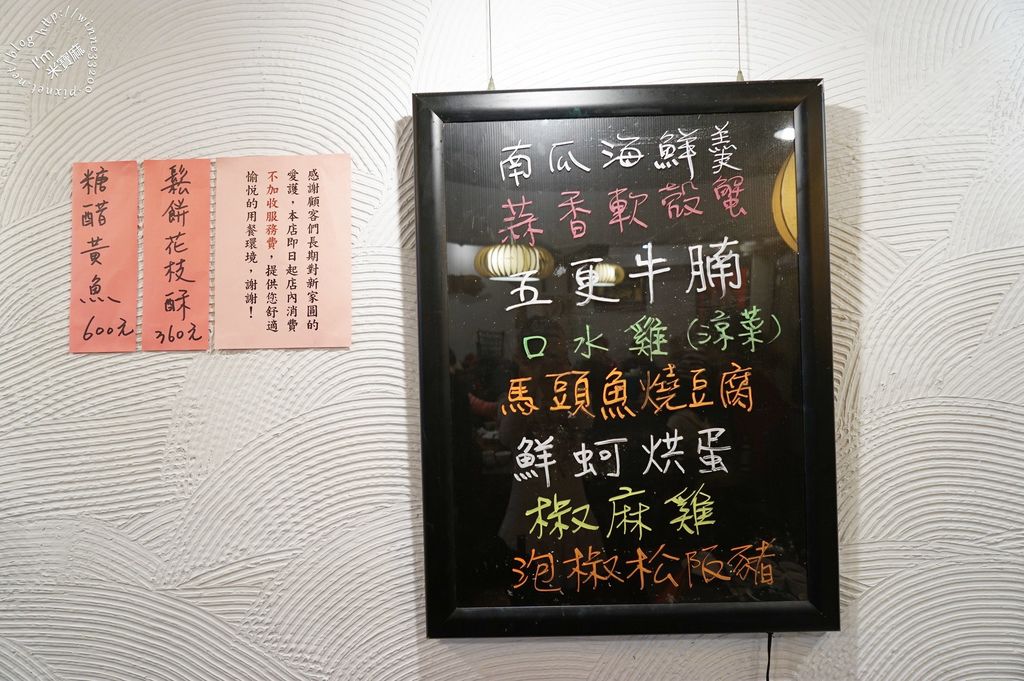 I'm
米寶麻
blog http://winne33200.pixnet.net/blog
糖醋黃魚
600元
鬆餅花枝酥
360元
感謝顧客們長期對新家園的
愛護，本店即日起店內消費
不加收服務費，提供您舒適
愉悅的用餐環境，謝謝！
南瓜海鮮羹
蒜香軟殼蟹
五更牛腩
口水雞(涼菜)
馬頭魚燒豆腐
鮮蚵烘蛋
椒麻雞
泡椒松阪豬